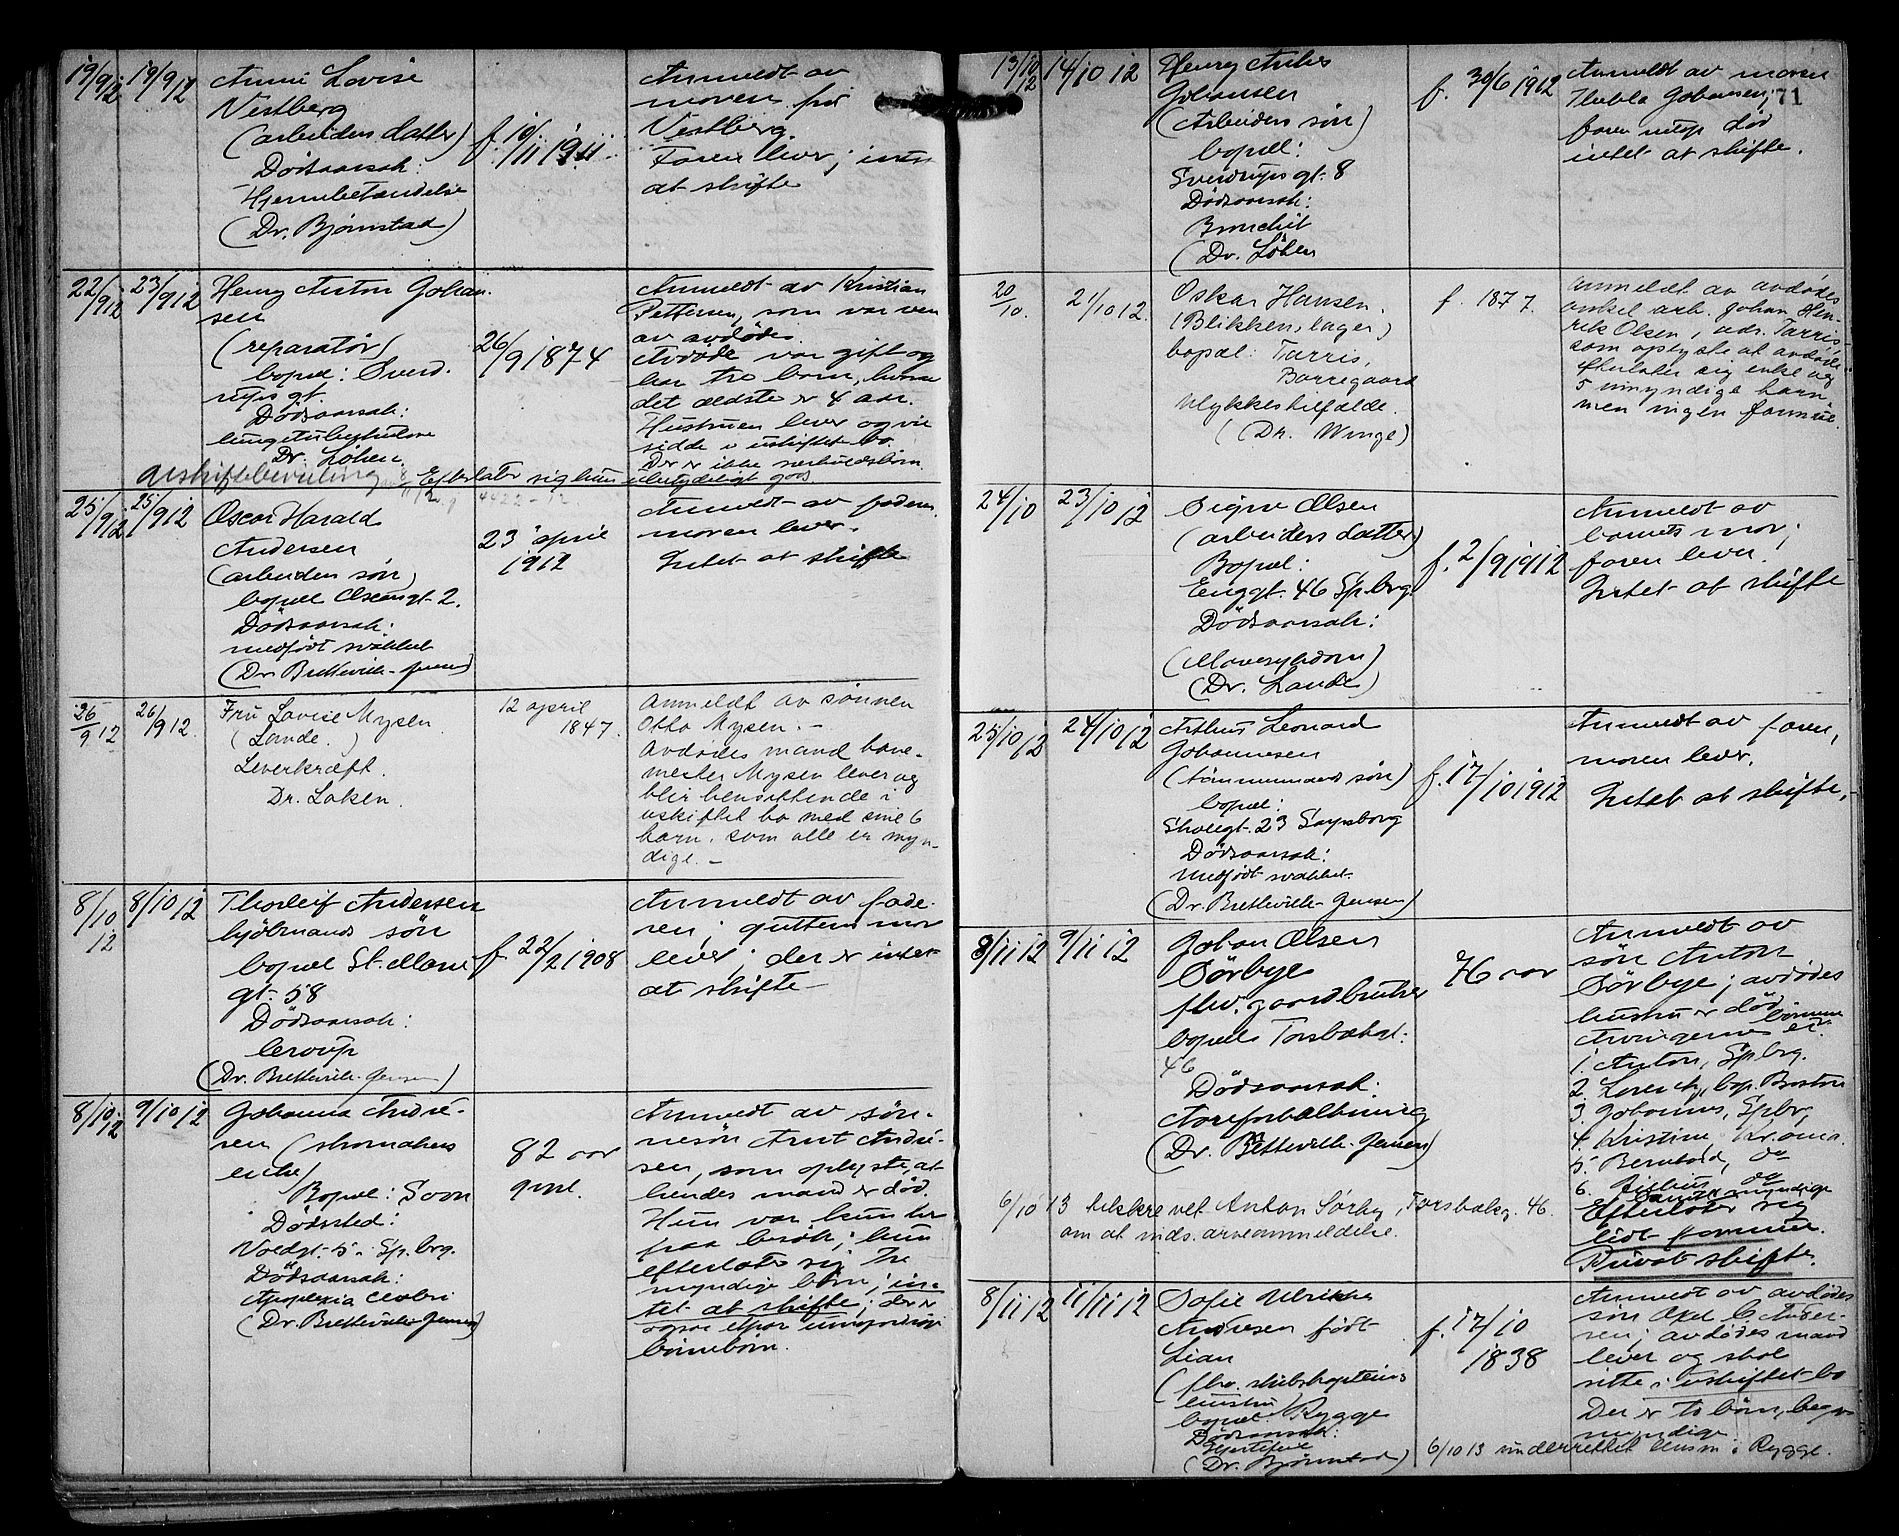 19/9 12
19/9 12
Anne Lovise
Vestberg
(arbeiders datter)
Dödsaarsak:
Hjernebetændelse
(Dr. Bjørnstad)
f 10/11 1911
Anmeldt av
moren fru
Vestberg.
Faren lever; intet
at skifte
22/9 12
23/9 12
Henry Anton Johan
sen
(reparatör)
bopæl: Sverd.
rups gt.
Dödsaarsak:
lungetuberkulose
Dr. Löken.
26/9 1874
Anmeldt av Kristian
Pettersen, som var ven
av avdöde.
Avdöde var gift og
har tre born, hvorav
det ældste er 4 aar.
Hustruen lever og vil
sidde i uskiftet bo.
Der er ikke særkuldsbörn
Efterlater sig kun ubetydeligt gods
25/9 12
25/9 12
Oscar Harald
Andersen
(arbeiders sön)
bopæl Oscarsgt. 2.
Dödsaarsak:
medfödt svakhet
(Dr. Bretteville-Jensen)
23 april
1912
Anmeldt av faderen
moren lever.
Intet at skifte
26/9 12
26/9 12.
Fru Lovise Mysen
(Lande.)
Leverkræft.
Dr. Løken.
12 april
1847.
Anmeldt av sönnen
Otto Mysen. -
Avdødes mand bane-
mester Mysen lever og
blir bensittende i
uskiftet bo med sine 6
barn, som alle er myn-
dige. -
8/10 12
8/10 12
Thorleif Andersen
hjölmands sön
bopæl St. Marie
gt. 58
Dödsaarsak:
croup
(Dr. Bretteville-Jensen)
f 22/2 1908
Anmeldt av fade-
ren; guttens mor
lever; der er intet
at skifte
8/10 12
9/10 12
Johanna André-
sen (skomakers
enke)
Bopæl: Soon
Dödssted:
Voldgt. 5. Sp.brg.
Dödsaarsak:
Apoplexia cerebri
(Dr. Bretteville-Jensen)
82 aar
gml.
Anmeldt av sön-
nesön Arnt André-
sen, som oplyste, at
hendes mand er död.
Hun var kun her
paa besök; hun
efterlater sig tre
myndige börn; in-
tet at skifte; der er
ogsaa etpar umyndige
börnebörn.
71
13/10 12
14/10 12
Henry Anker
Johansen
(Arbeiders sön)
bopæl:
Sverdrups gt. 8
Dödsaarsak:
Bronchit
(Dr. Löken
f. 30/6 1912
Anmeldt av moren
Thekla Johansen;
faren død
intet at skifte.
20/10.
21/10 12.
Oskar Hansen.
(Blikkensl­ager)
bopæl: Tarris,
Borregaard
Ulykkestilfælde.
(Dr. Winge)
f. 1877.
Anmeldt av avdødes
onkel arb. Johan Hen-
rik Olsen, adr. Tarris,
som oplyste at avdøde
efterlater sig enke og
5 umyndige barn,
men ingen formue.
24/10
23/10 12
Signe Olsen
(arbeiders datter)
Bopæl:
Enggt. 46 Sp.brg.
Dödsaarsak:
(Mavesykdom)
(Dr. Lande)
f. 2/9 1912
Anmeldt av
barnets mor;
faren lever.
Intet at skifte
25/10 12
24/10 12
Arthur Leonard
Johannesen
(tömmermands sön)
bopæl:
Skolegt. 23 Sarpsborg
Dödsaarsak:
Medfödt svakhet.
(Dr. Bretteville-Jensen)
f. 17/10 1912
Anmeldt av faren,
moren lever.
Intet at skifte.
8/11 12
9/11 12
Johan Olsen
Sörbye
fhv. gaardbruker
bopæl Torsbækgt.
46
Dödsaarsak:
Aareforkalkning
(Dr. Bretteville-Jensen)
76 aar
Anmeldt av
sön Anton
Sörbye; avdödes
hustru er död
Arvingerne er börnene
1. Anton, Spbrg.
2. , bp. Boston
3. Johannes, Spbrg.
4. Kristine, Kr.ania.
5. Bernhard, do
6. do
myndige
Efterlater sig
lidt formue.
Privat skifte.
6/10 13 tilskrevet Anton Sørby, Torsbakg. 46.
om at inds. arveanmeldelse.
8/11 12
11/11 12
Sofie Ulrikke
Andresen födt
Lian
(fhv. skibskapteins
hustru
bopæl: Rygge
Dödsaarsak:
Hjertefeil
(Dr. Bjørnstad)
f. 17/10
1838
Anmeldt av avdödes
sön Axel C. Andre-
sen; avdödes mand
lever og skal
sitte i uskiftet bo
Der er to börn, begge
myndige
6/10 13 underrettet lensm. i Rygge.